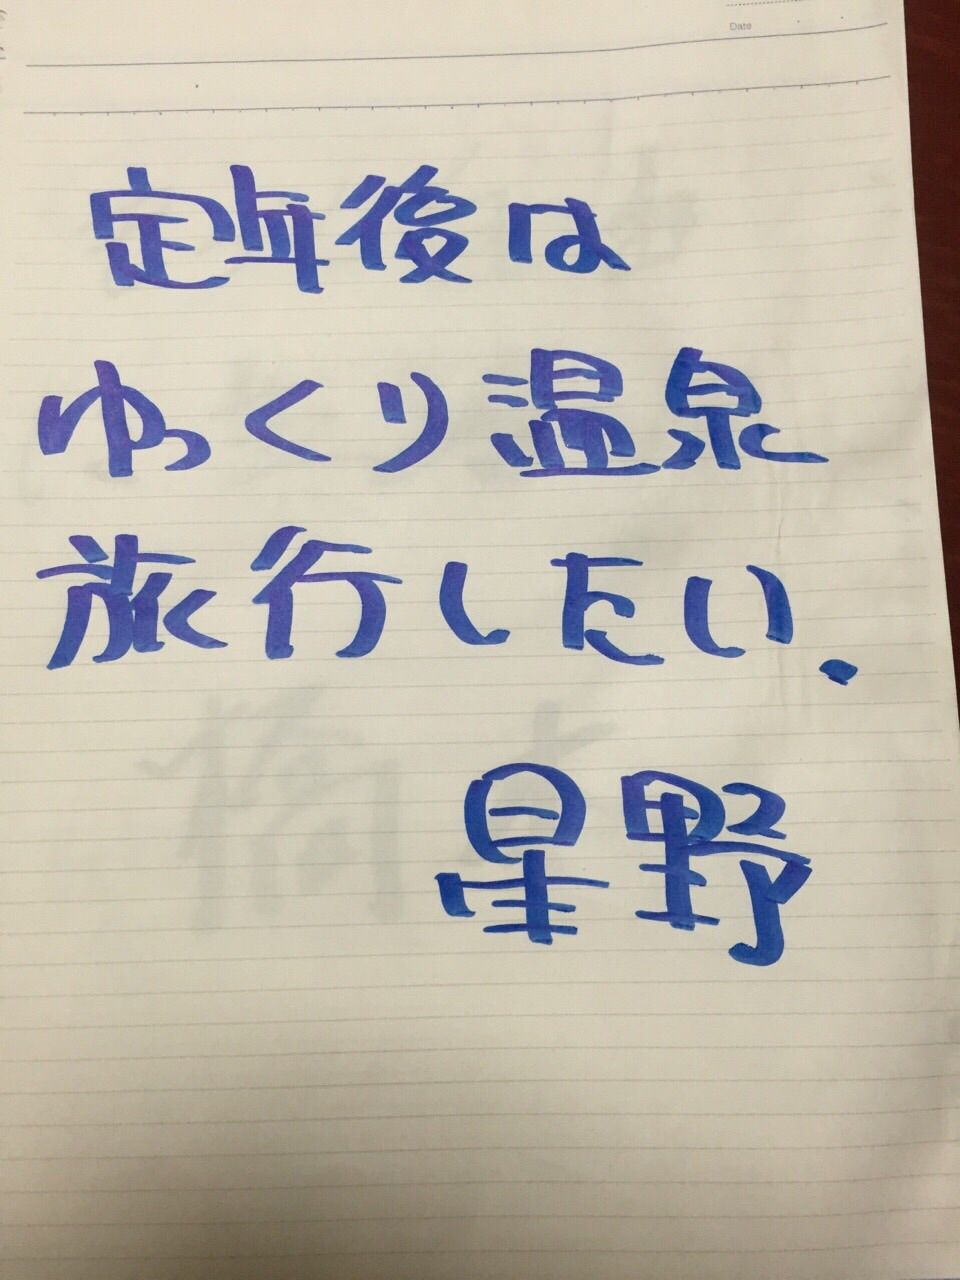 Date
定年後は
ゆっくり温泉
旅行したい.
星野